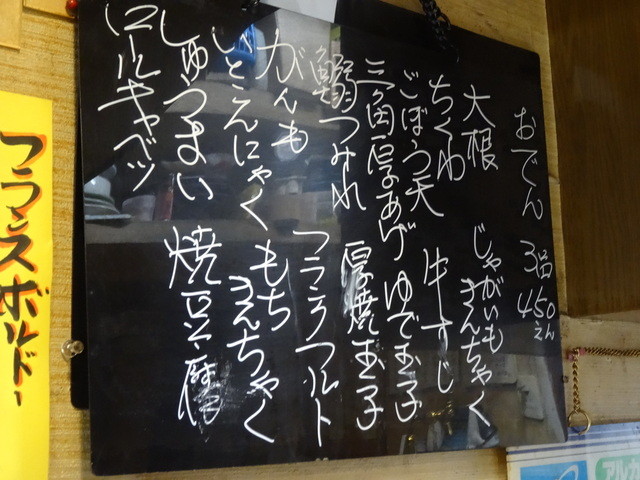 おでん 3個 450えん
大根 じゃがいもきんちゃく
ちくわ 牛すじ
ごぼう天 ゆで玉子
三角厚あげ 厚焼玉子
鰯つみれ フランクフルト
がんも もちきんちゃく
いとこんにゃく 焼豆腐
しゅうまい
ロールキャベツ
フランスボルドー
アルカ